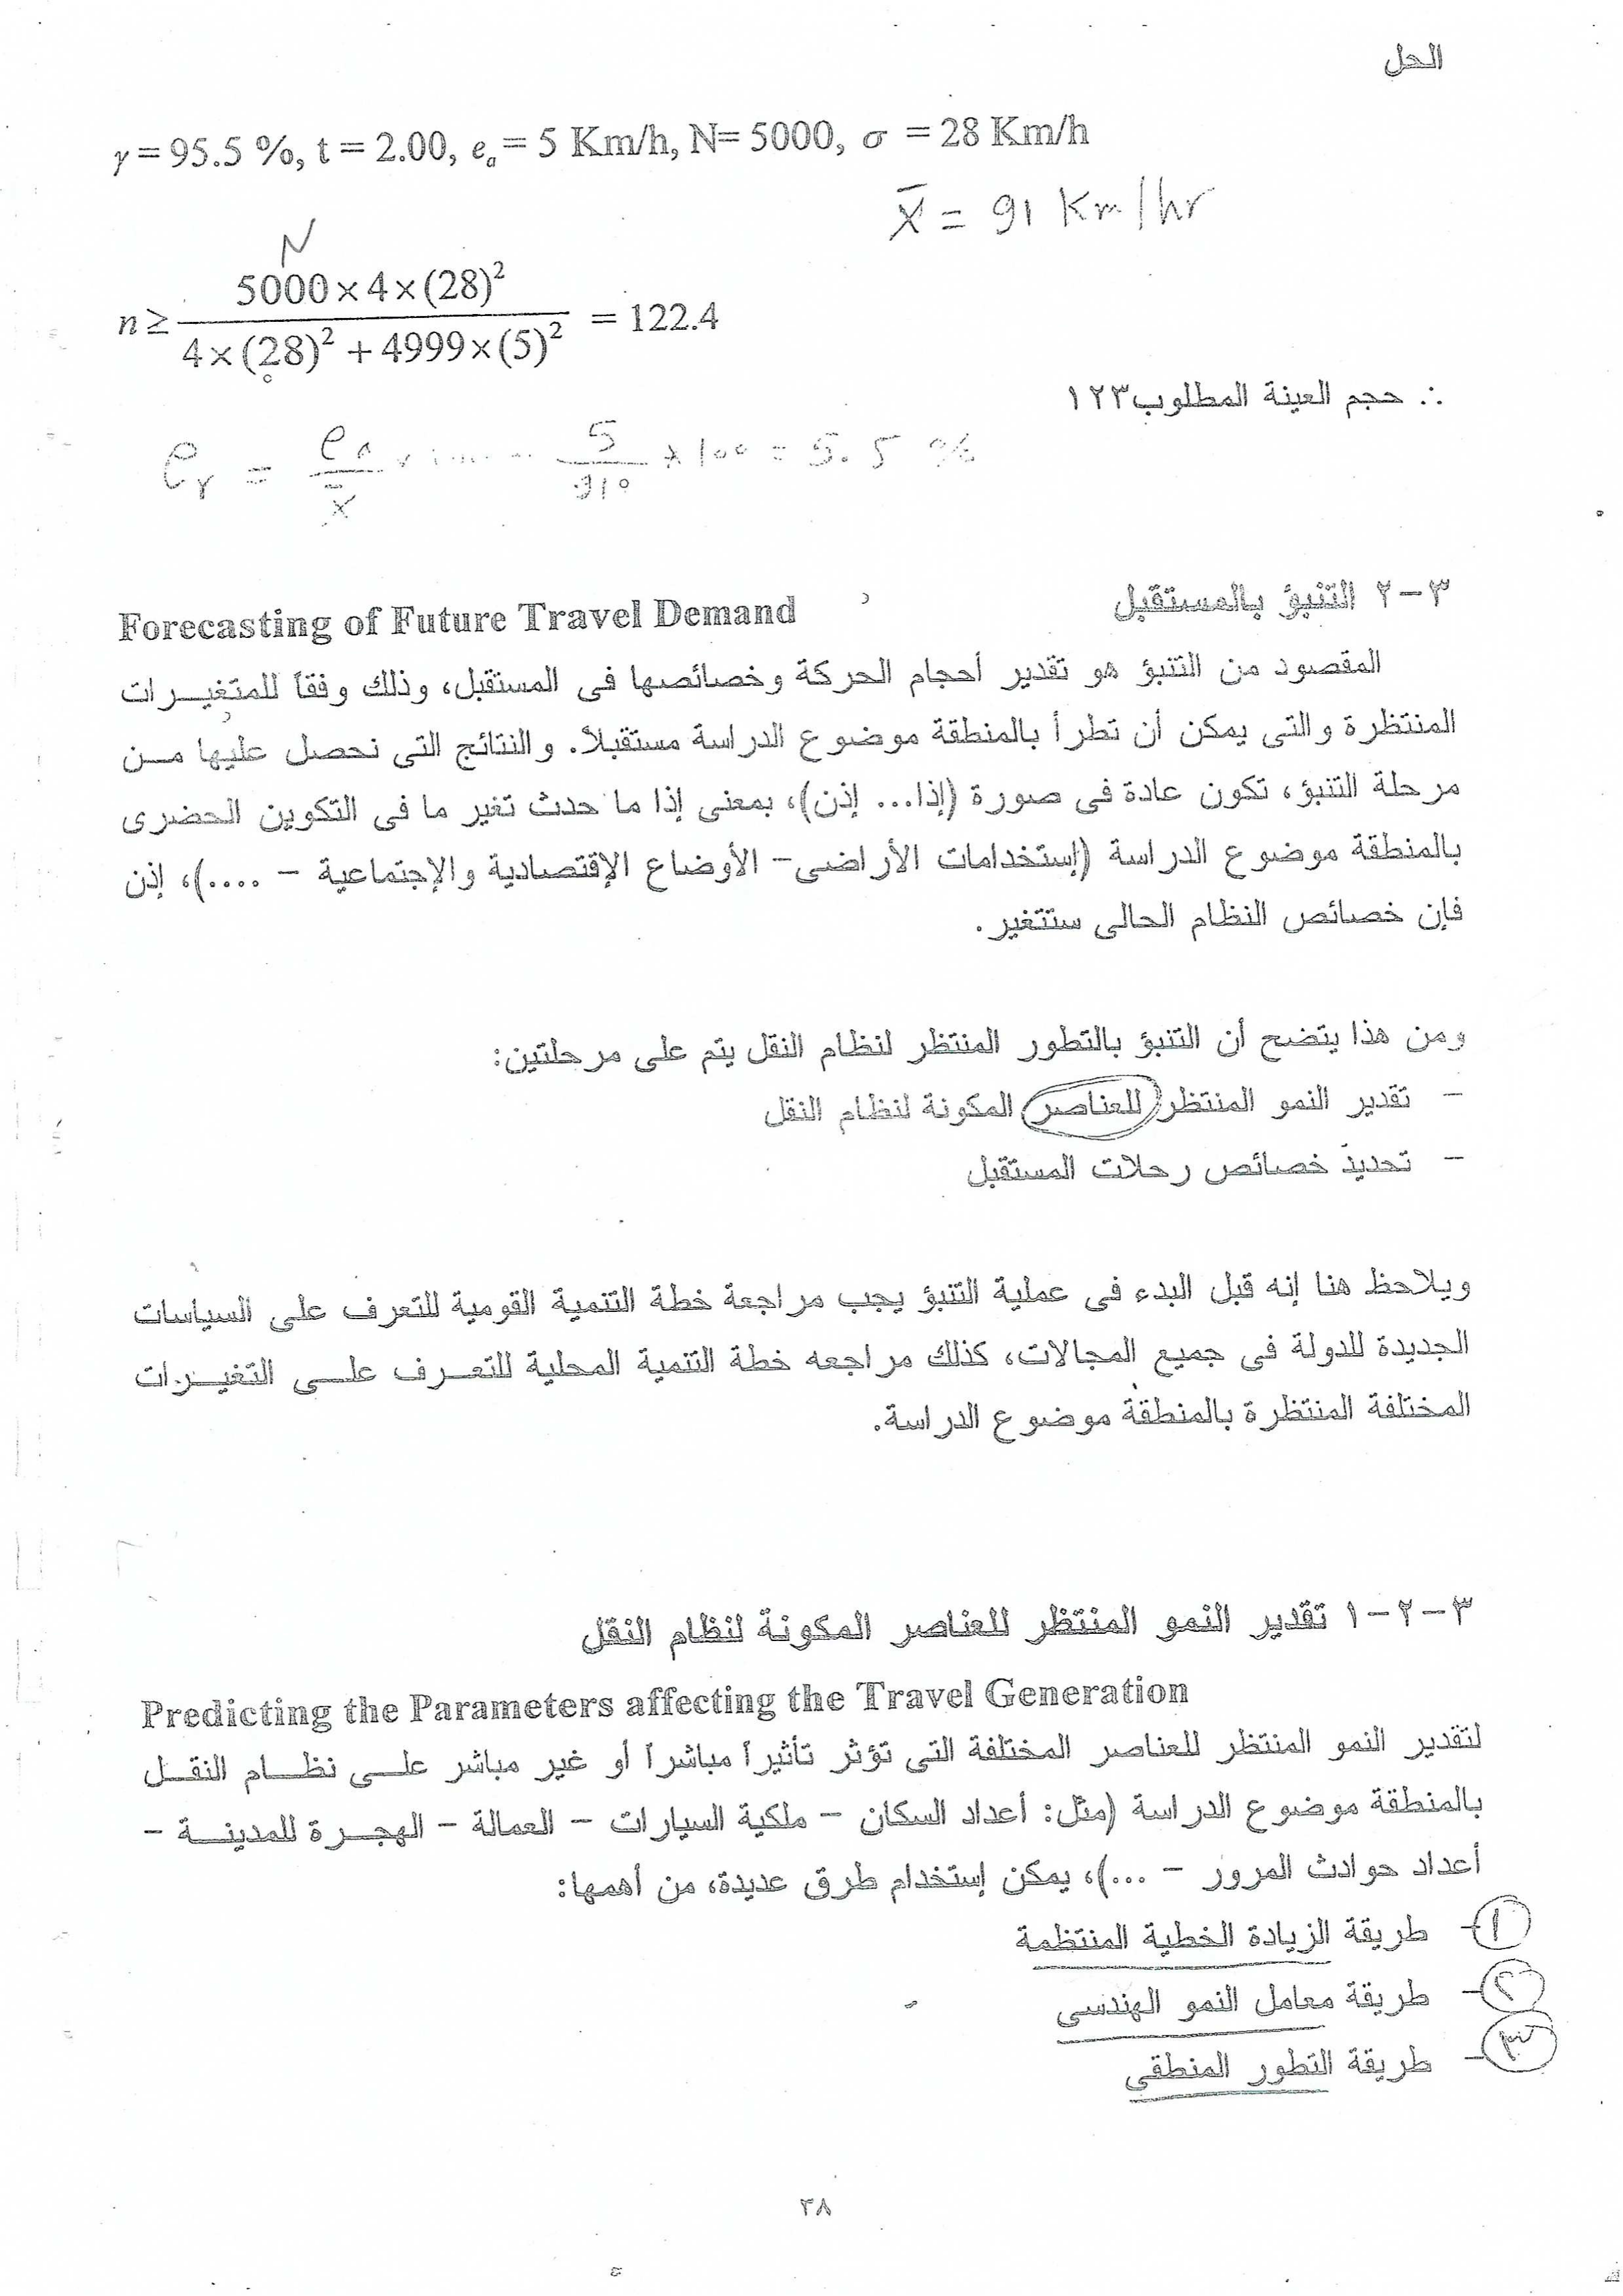 الحل
γ = 95.5 %, t = 2.00, eₐ = 5 Km/h, N= 5000, σ = 28 Km/h
x̄ = 91 Km/hr
N
n ≥ 5000×4×(28)² / 4×(28)² + 4999×(5)² = 122.4
∴ حجم العينة المطلوب ١٢٣
eᵣ = eₐ / x̄ × 100 = 5 / 91 × 100 = 5.5 %
٣-٢ التنبؤ بالمستقبل
Forecasting of Future Travel Demand
المقصود من التنبؤ هو تقدير أحجام الحركة وخصائصها فى المستقبل، وذلك وفقاً للمتغيرات
المنتظرة والتى يمكن أن تطرأ بالمنطقة موضوع الدراسة مستقبلاً. والنتائج التى نحصل عليها من
مرحلة التنبؤ، تكون عادة فى صورة (إذا... إذن)، بمعنى إذا ما حدث تغير ما فى التكوين الحضرى
بالمنطقة موضوع الدراسة (إستخدامات الأراضى- الأوضاع الإقتصادية والإجتماعية - ....)، إذن
فإن خصائص النظام الحالى ستتغير.
ومن هذا يتضح أن التنبؤ بالتطور المنتظر لنظام النقل يتم على مرحلتين:
- تقدير النمو المنتظر للعناصر المكونة لنظام النقل
- تحديد خصائص رحلات المستقبل
ويلاحظ هنا إنه قبل البدء فى عملية التنبؤ يجب مراجعة خطة التنمية القومية للتعرف على السياسات
الجديدة للدولة فى جميع المجالات، كذلك مراجعه خطة التنمية المحلية للتعرف على التغيرات
المختلفة المنتظرة بالمنطقة موضوع الدراسة.
٣-٢-١ تقدير النمو المنتظر للعناصر المكونة لنظام النقل
Predicting the Parameters affecting the Travel Generation
لتقدير النمو المنتظر للعناصر المختلفة التى تؤثر تأثيراً مباشراً أو غير مباشر على نظام النقل
بالمنطقة موضوع الدراسة (مثل: أعداد السكان - ملكية السيارات - العمالة - الهجرة للمدينة -
أعداد حوادث المرور - ...)، يمكن إستخدام طرق عديدة، من أهمها:
١- طريقة الزيادة الخطية المنتظمة
٢- طريقة معامل النمو الهندسى
٣- طريقة التطور المنطقى
٣٨